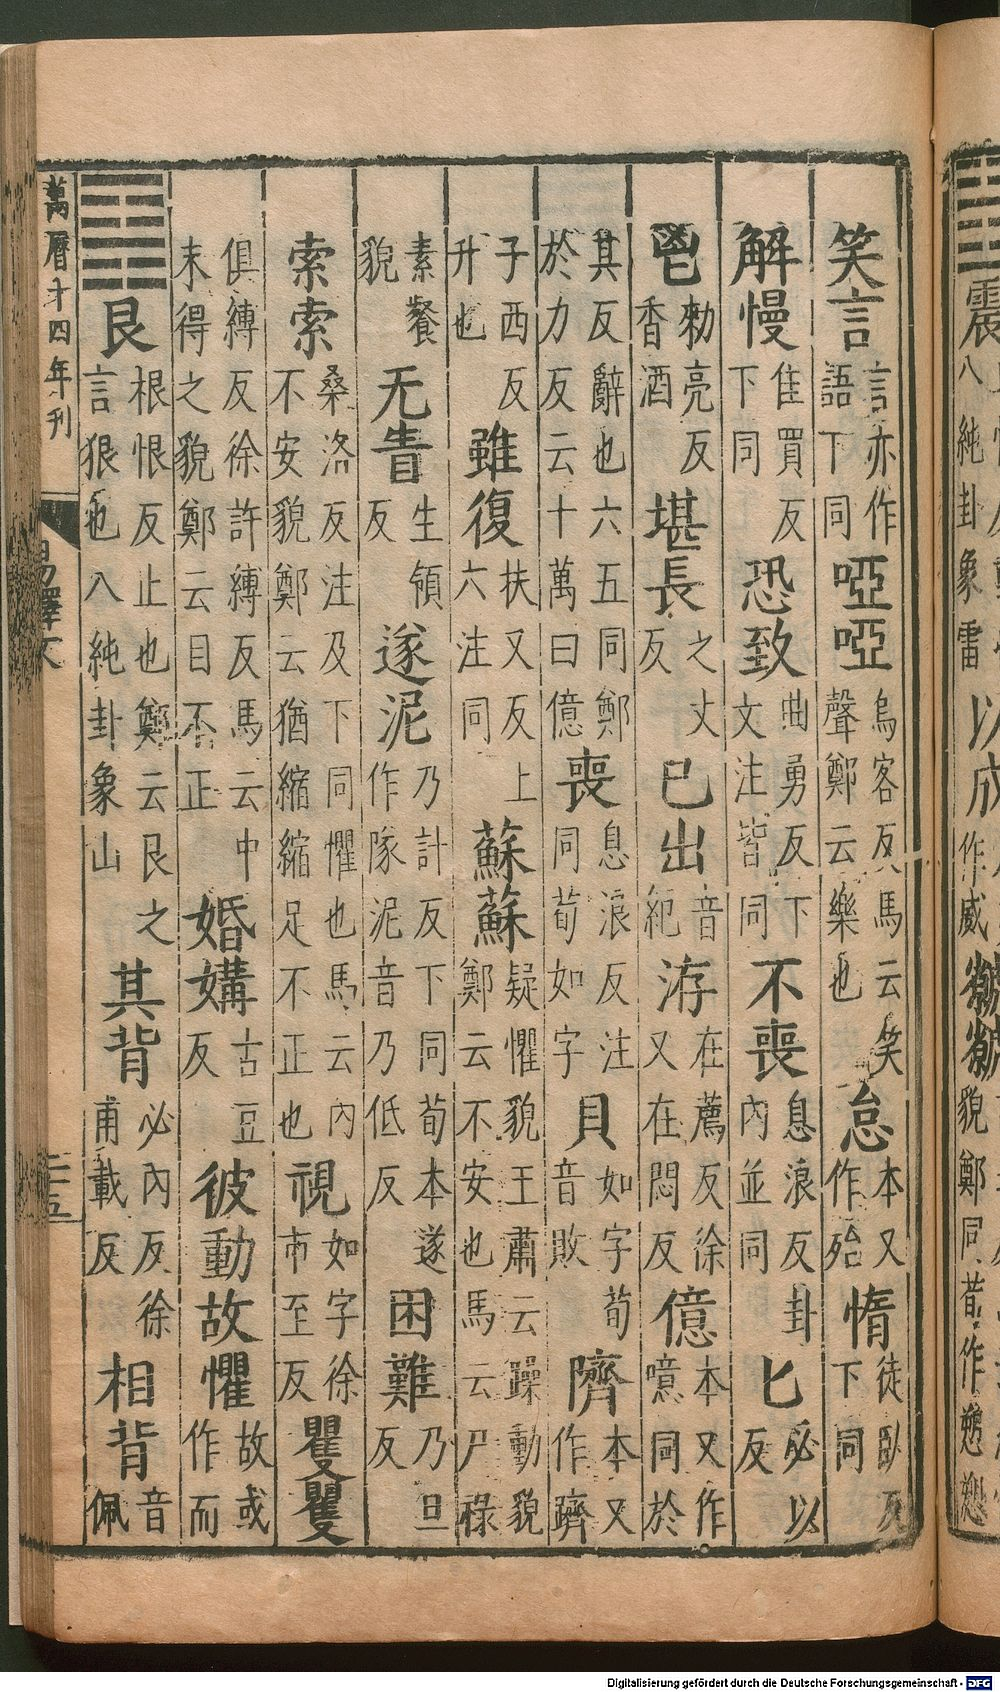 震八純卦象雷以成作威虩虩貌鄭同荀作愬愬
笑言言亦作語下同啞啞烏客反馬云笑聲鄭云樂也怠本又作殆惰徒臥反下同
解慢佳買反下同恐致曲勇反下文注皆同不喪息浪反卦內並同匕必以反
鬯勑亮反香酒堪長之丈反已出音紀洊在薦反徐又在悶反億本又作噫同於
其反辭也六五同鄭於力反云十萬曰億喪息浪反注同荀如字貝如字荀音敗隮本又作躋
子西反升也雖復扶又反上六注同蘇蘇疑懼貌王肅云躁動貌鄭云不安也馬云尸祿
素餐貌无眚生領反遂泥乃計反下同荀本遂作隊泥音乃低反困難乃旦反
索索桑洛反注及下同懼也馬云內不安貌鄭云猶縮縮足不正也視如字徐市至反矍矍
俱縛反徐許縛反馬云中未得之貌鄭云目不正婚媾古豆反彼動故懼故或作而
艮根恨反止也鄭云艮之言狠也八純卦象山其背必內反徐甫載反相背音佩
萬曆十四年刊 易釋文
Digitalisierung gefördert durch die Deutsche Forschungsgemeinschaft - DFG